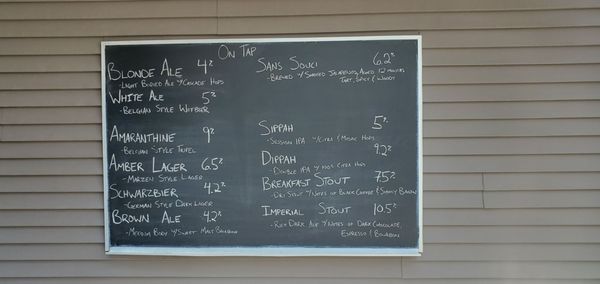 On Tap
Blonde Ale 4%
-Light Bodied Ale w/Cascade Hops
White Ale 5%
-Belgian Style Witbier
Amaranthine 9%
-Belgian Style Tripel
Amber Lager 6.5%
-Marzen Style Lager
Schwarzbier 4.2%
-German Style Dark Lager
Brown Ale 4.2%
-Medium Body w/Sweet Malt Backbone
Sans Souci 6.2%
-Brewed w/ Smoked Jalapenos, Aged 12 months
Tart, Spicy & Woody
Sippah 5%
-Session IPA w/Citra & Mosaic Hops
Dippah 9.2%
-Double IPA w/100% Citra Hops
Breakfast Stout 7.5%
-Dry Stout w/Notes of Black Coffee & Smoky Bacon
Imperial Stout 10.5%
-Rich Dark Ale w/Notes of Dark Chocolate,
Espresso & Bourbon